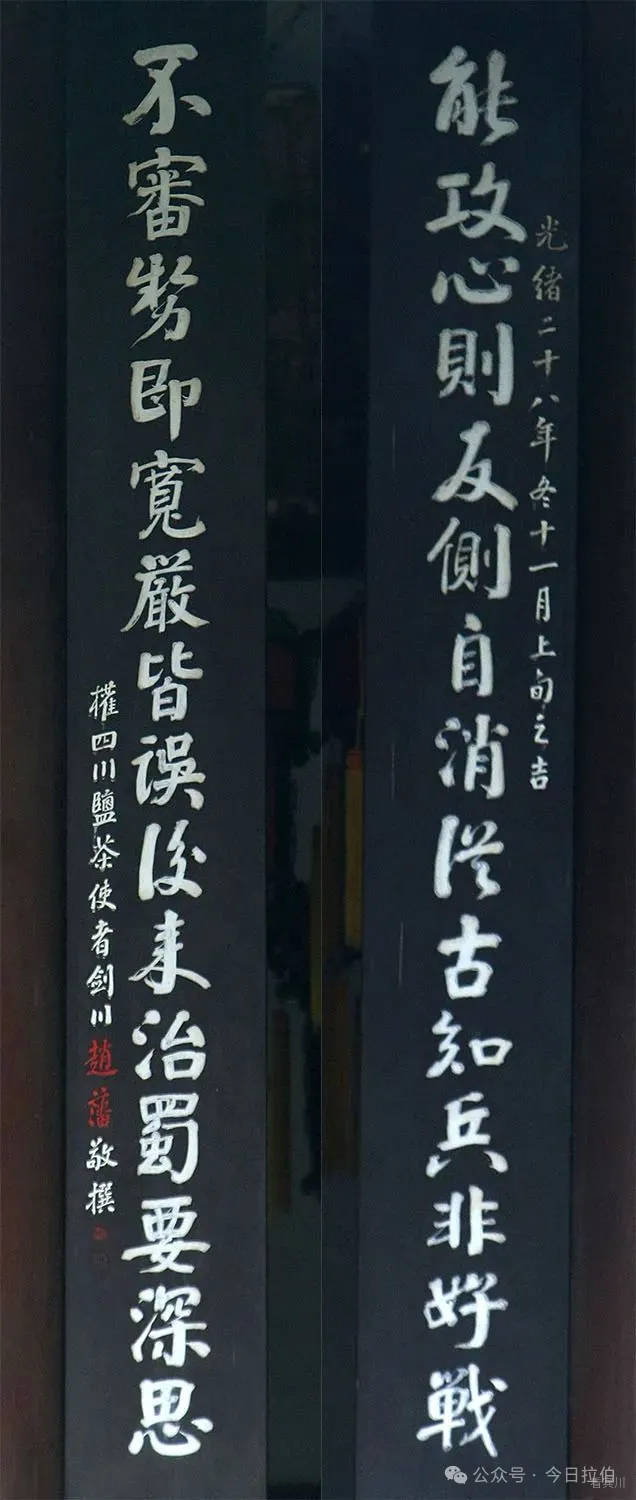 光緒二十八年冬十一月上旬之吉
能攻心則反側自消從古知兵非好戰
不審勢即寬嚴皆誤後來治蜀要深思
權四川鹽茶使者劍川趙藩敬撰
公众号·今日拉伯